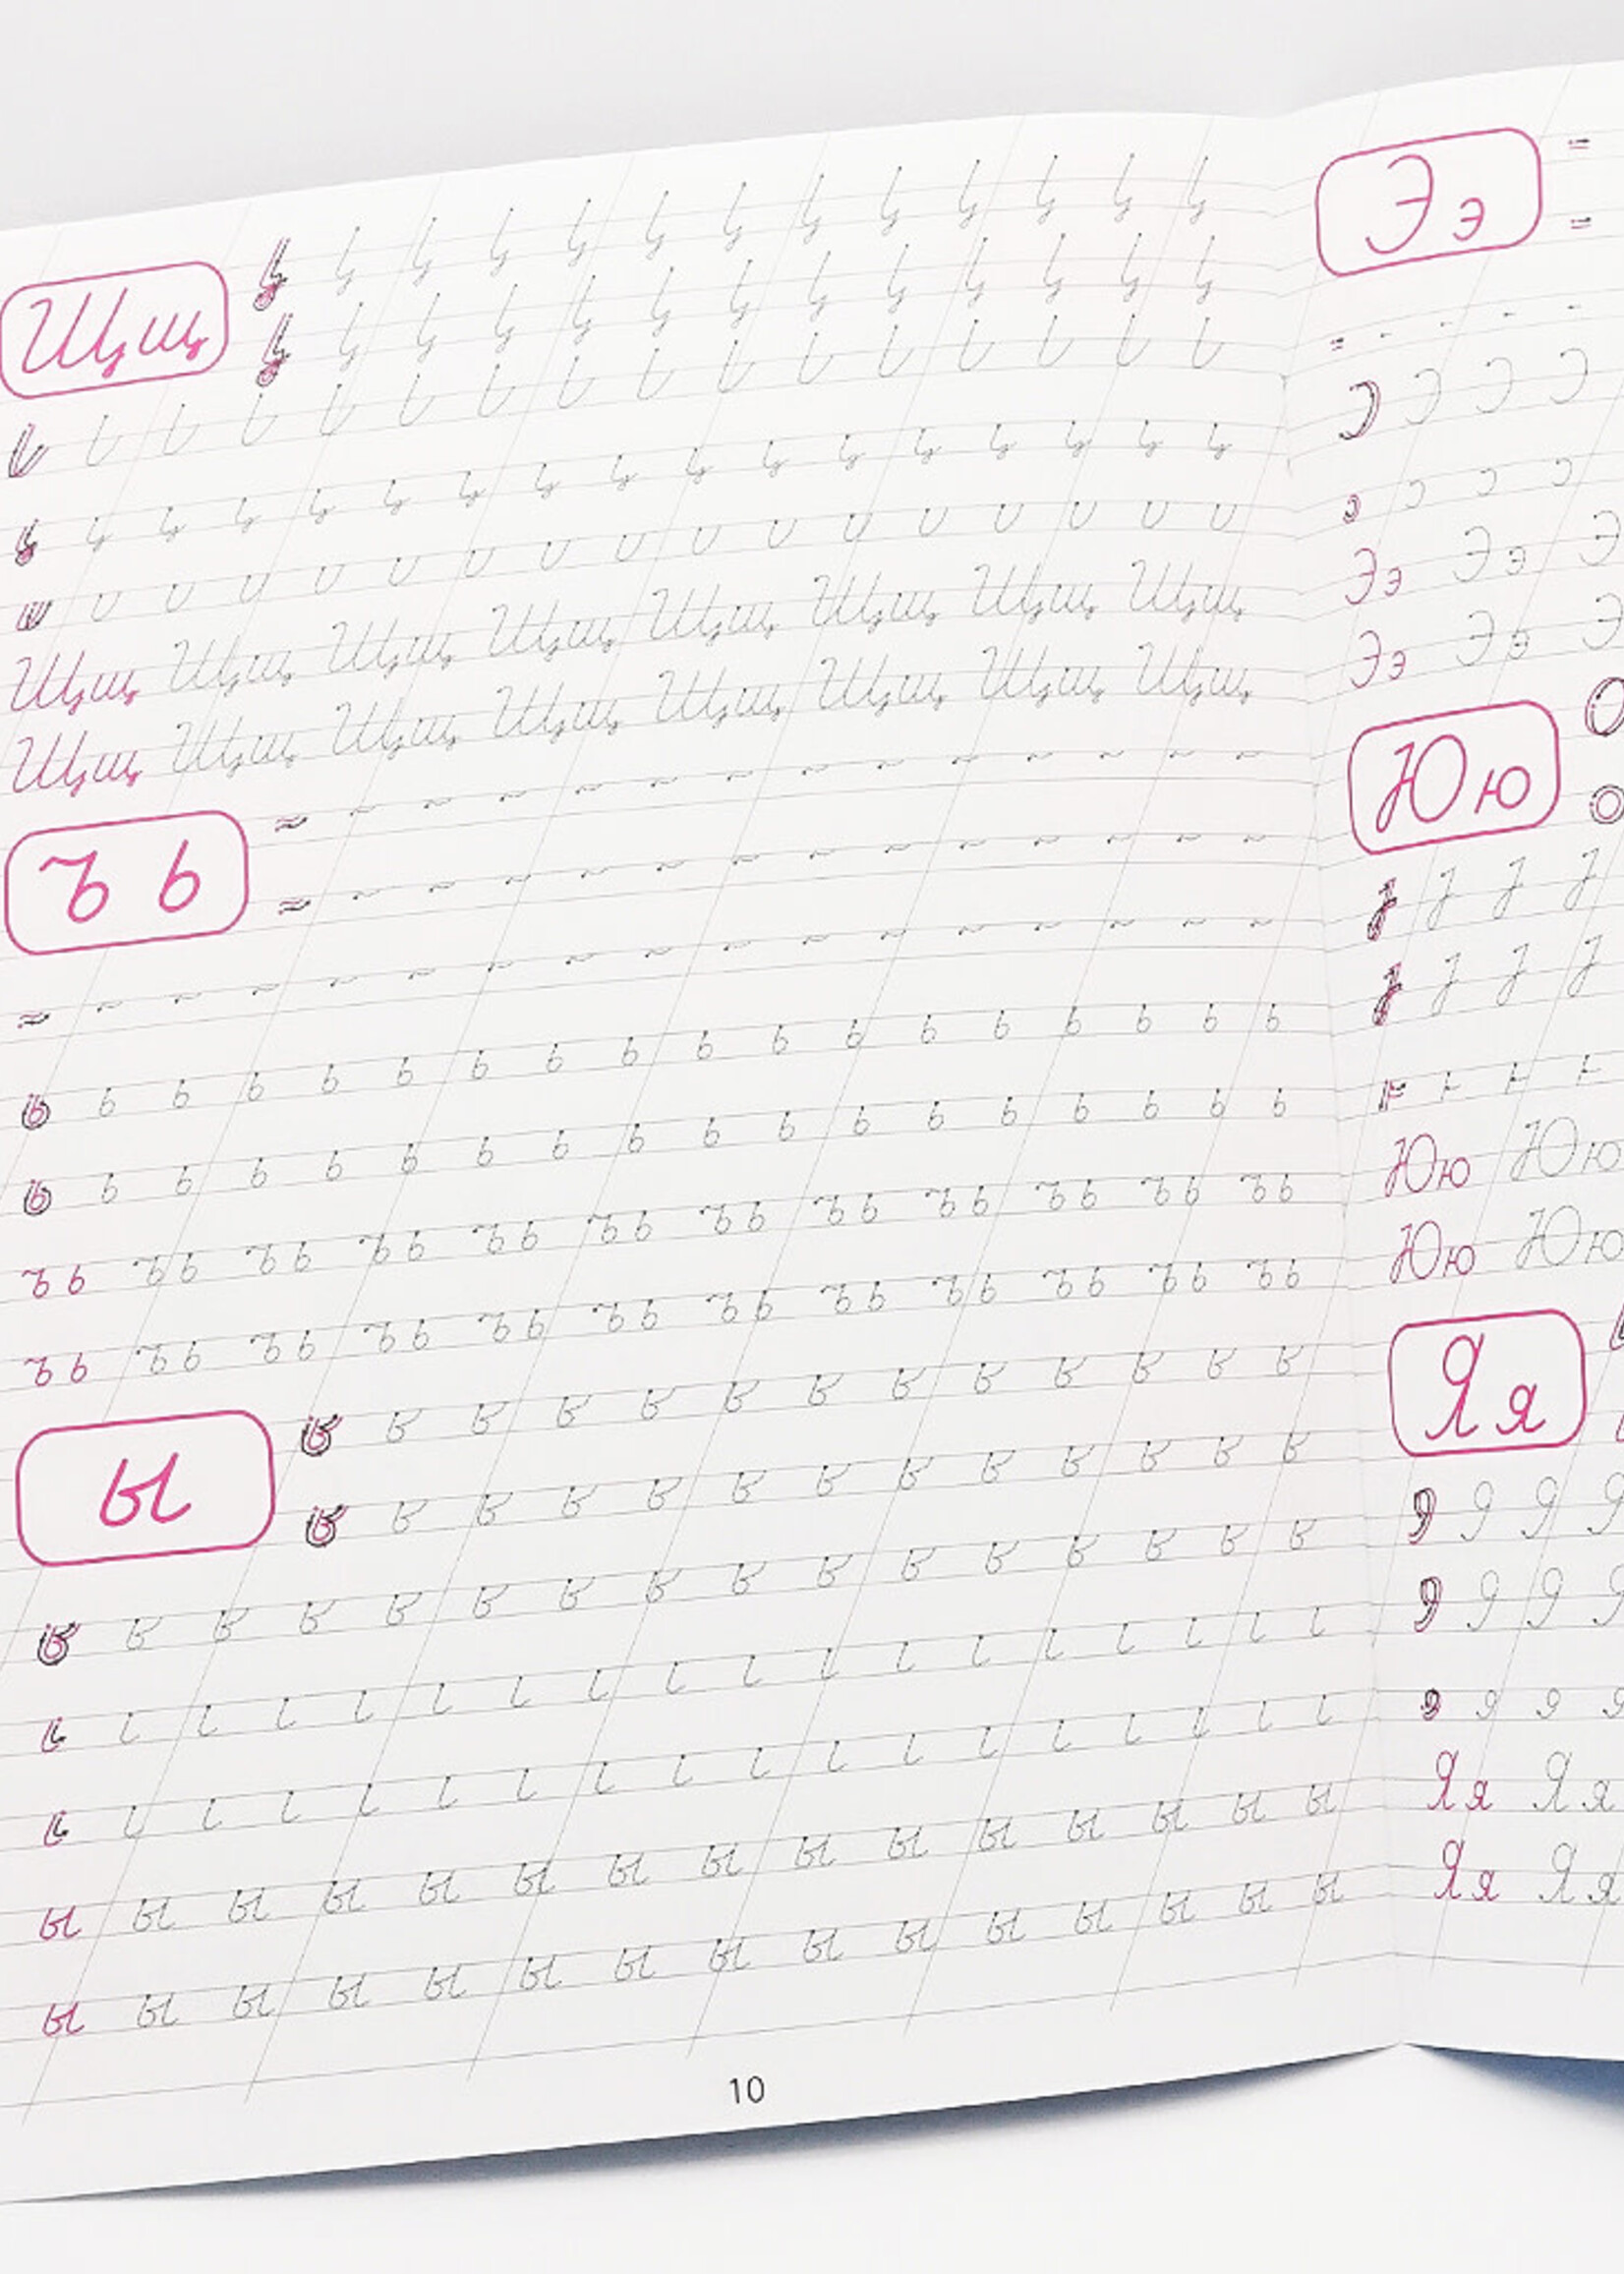 Щщ
Щщ Щщ Щщ Щщ Щщ Щщ Щщ Щщ
Щщ Щщ Щщ Щщ Щщ Щщ Щщ Щщ
ъ ь
ь ь ь ь ь ь ь ь ь ь ь ь ь ь ь ь ь ь
ь ь ь ь ь ь ь ь ь ь ь ь ь ь ь ь ь ь
ъ ь ъ ь ъ ь ъ ь ъ ь ъ ь ъ ь ъ ь ъ ь ъ ь ъ ь ъ ь
ъ ь ъ ь ъ ь ъ ь ъ ь ъ ь ъ ь ъ ь ъ ь ъ ь ъ ь ъ ь
ы
ы ы ы ы ы ы ы ы ы ы ы ы ы ы ы
ы ы ы ы ы ы ы ы ы ы ы ы ы ы ы
10
Ээ
Ээ Ээ Э
Ээ Ээ Э
Юю
Юю Юю
Юю Юю
Яя
Яя Яя
Яя Яя